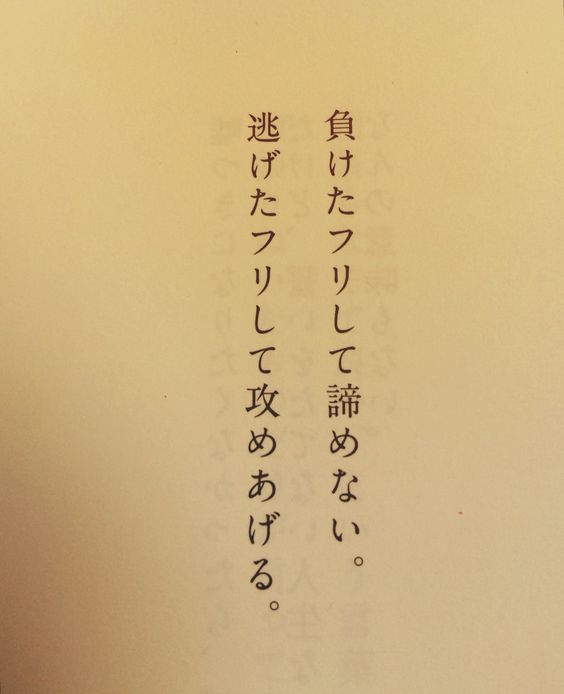 負けたフリして諦めない。
逃げたフリして攻めあげる。